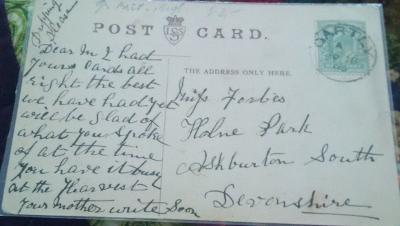 POST CARD.
THE ADDRESS ONLY HERE.
Dear M I had
yours cards all
right the best
we have had yet
will be glad of
what you spoke
of at the time
you have it busy
at the Harvest
your mother write soon
Miss Forbes
Holne Park
Ashburton South
Devonshire